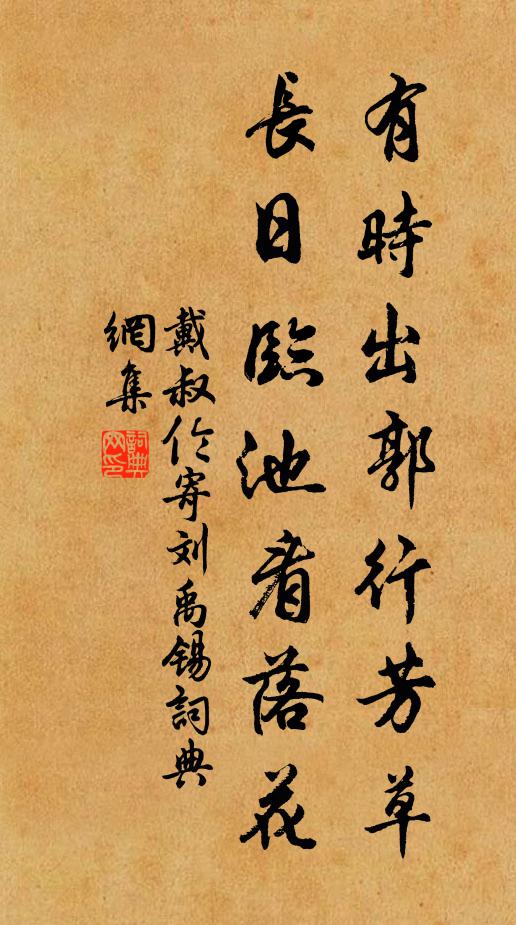 有時出郭行芳草
長日臨池看落花
戴叔伦寄刘禹锡詞典
網集
詞典
网印